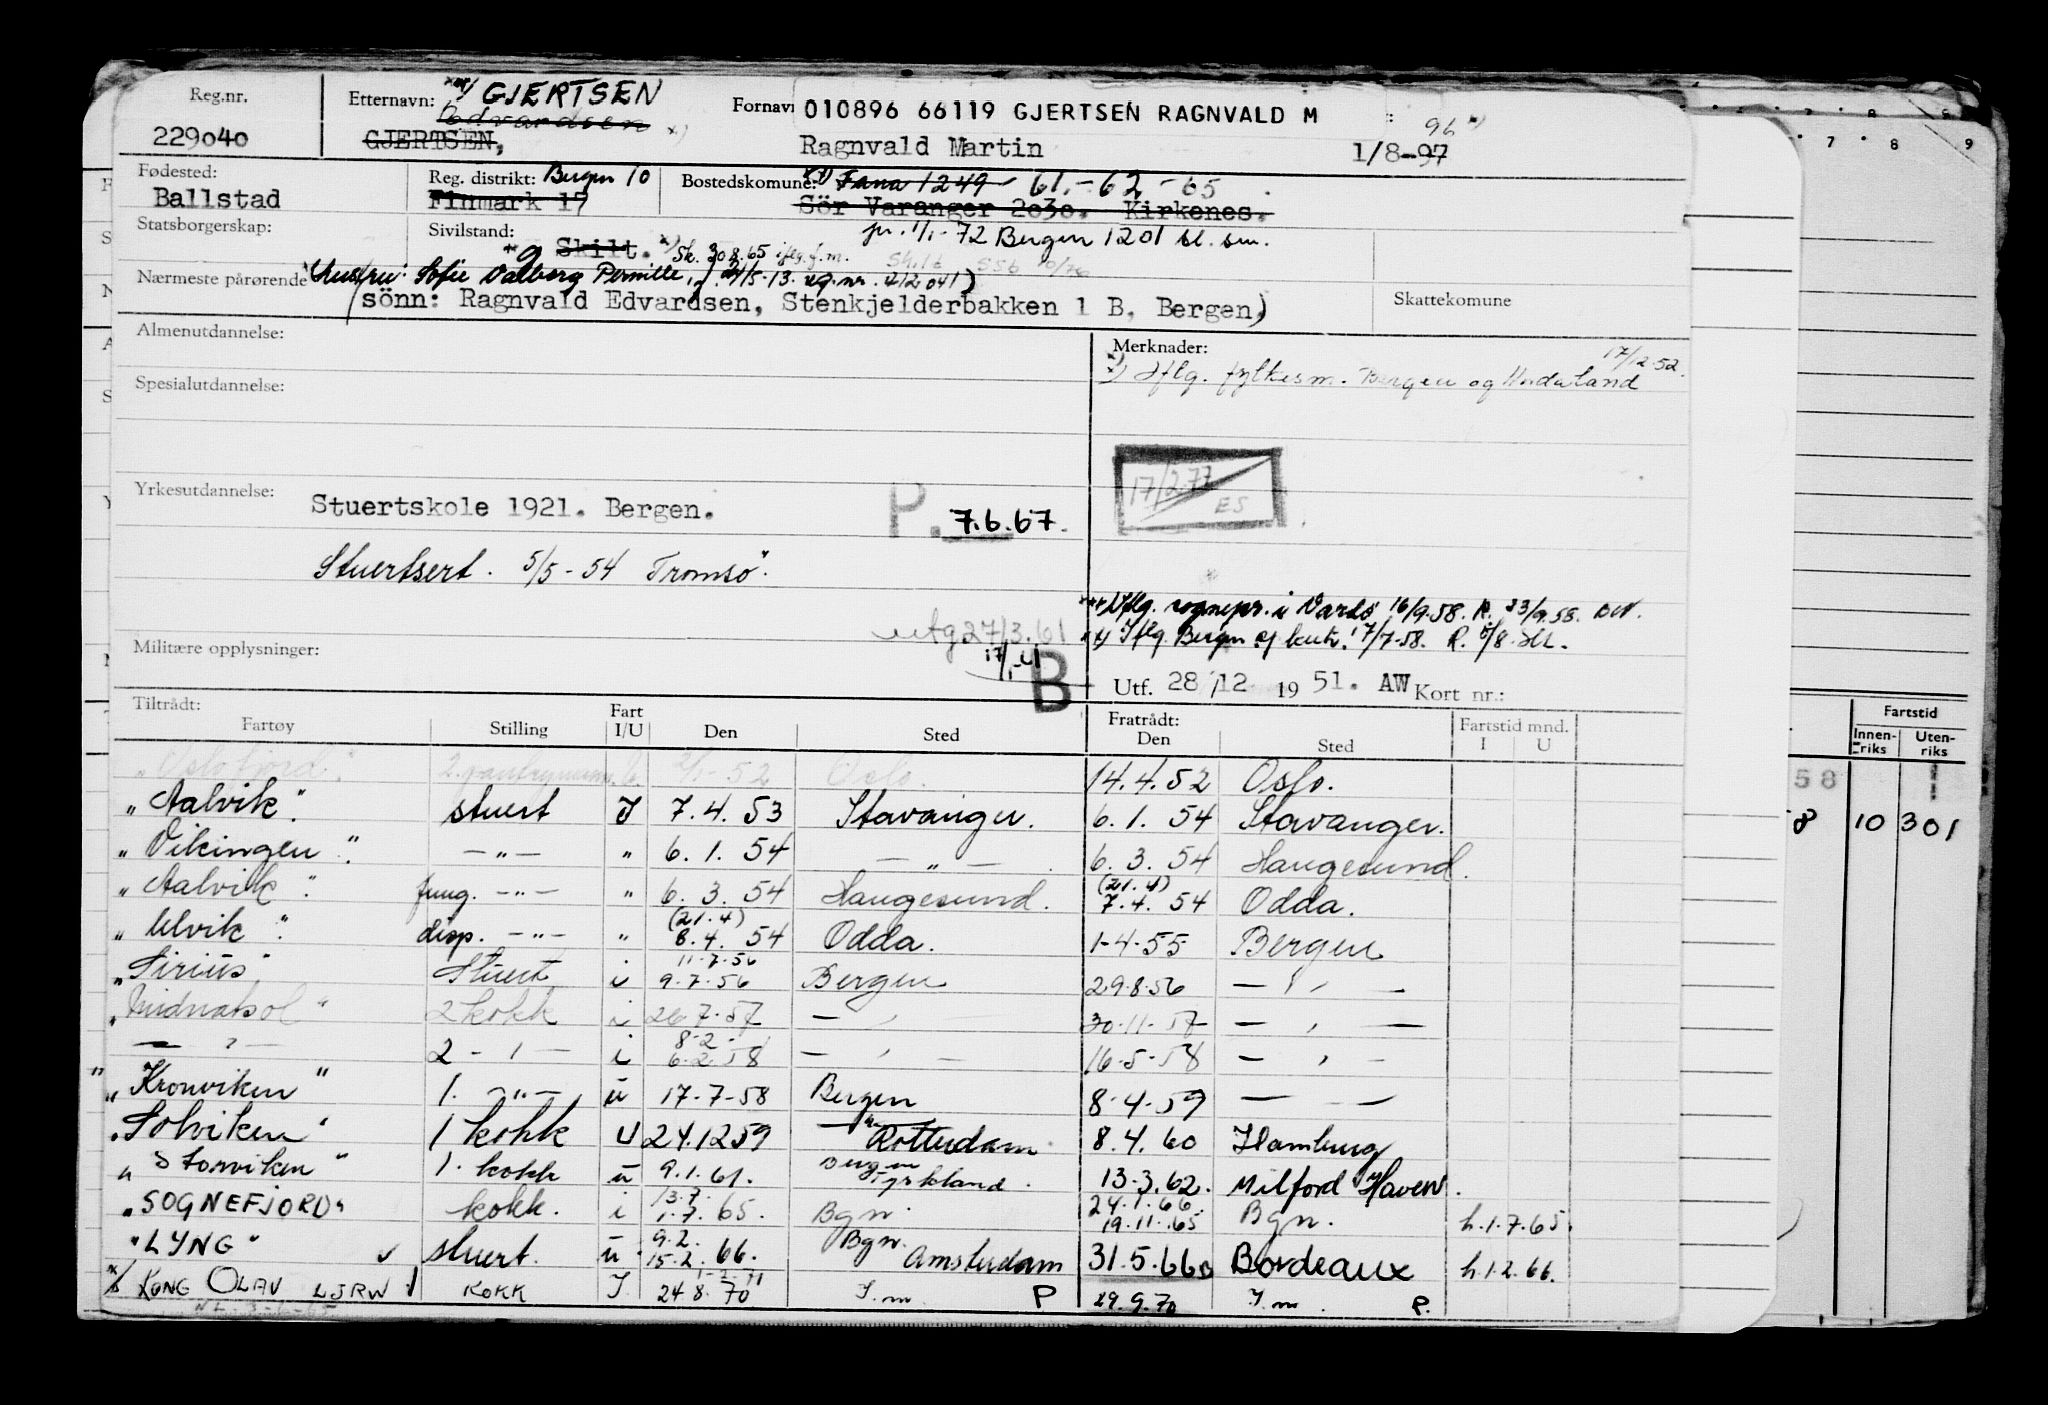 Reg.nr. Etternavn: GJERTSEN Fornavn 010896 66119 GJERTSEN RAGNVALD M
Edvardsen 96
229040 GJERTSEN, Ragnvald Martin 1/8-97
Fødested: Reg. distrikt: Bergen 10 Bostedskomune: Fana 1249 - 61.-62.-65
Ballstad Finmark 17 Sör Varanger 2030. Kirkenes.
Statsborgerskap: Sivilstand: pr. 1/1-72 Bergen 1201
g Skilt. Sk. 30.8.65 iflg. f.m.
Nærmeste pårørende Hustru: Sofie Valborg Pernille, f. 24/5-13. reg.nr. 412041)
(sönn: Ragnvald Edvardsen, Stenkjelderbakken 1 B, Bergen) Skattekomune
Almenutdannelse: Merknader: 17/12-52.
Iflg. fylkesm. Bergen og Hordaland
Spesialutdannelse:
17/2.77
ES
Yrkesutdannelse: Stuertskole 1921. Bergen. P. 7.6.67.
Stuertsert. 5/5-54 Tromsö.
Iflg. sognepr. i Vardö 16/9.58. R. 23/9.58.
utg 27/3.61
Iflg. Bergen 7/7-58. R. 5/8.
Militære opplysninger:
B
Utf. 28/12 1951. AW Kort nr.:
Tiltrådt: Fart Fratrådt: Fartstid mnd.
Fartøy Stilling I/U Den Sted Den Sted I U
"Oslofjord" 52 Oslo. 14.4.52 Oslo.
"Aalvik". stuert I 7.4.53 Stavanger. 6.1.54 Stavanger.
"Vikingen". —"— " 6.1.54 —"— 6.3.54 Haugesund.
"Aalvik". fung. —"— " 6.3.54 Haugesund. (21.4) 7.4.54 Odda.
"Ulvik". disp. —"— " (21.4) 8.4.54 Odda. 1-4-55 Bergen
"Sirius" Stuert i 11.7.56 9.7.56 Bergen 29.8.56 —"—
"Midnatsol" 2 kokk i 26.7.57 —"— 30.11.57 —"—
—"— 2 —"— i 8.2. 6.2.58 —"— 16.5.58 —"—
"Kronviken" 1. —"— u 17-7-58 Bergen 8-4-59 —
"Solviken" 1 kokk U 24.12 59 Rotterdam 8.4.60 Hamburg
"Storviken" 1. kokk u 9.1.61. Bergen 13.3.62. Milford Haven.
"SOGNEFJORD" kokk. i 13.7. 1.7.65. Bgn. 24.1.66. 19.11.65 Bgn. h.1.7.65.
"LYNG" stuert. u 9.2. 15.2.66. Bgn. Amsterdam 31.5.66 Bordeaux h.1.2.66.
KONG OLAV LJRW KOKK I. 24.8.70 P 29.9.70 P.
Fartstid
Innenriks Utenriks
58
8 10 301
7 8 9